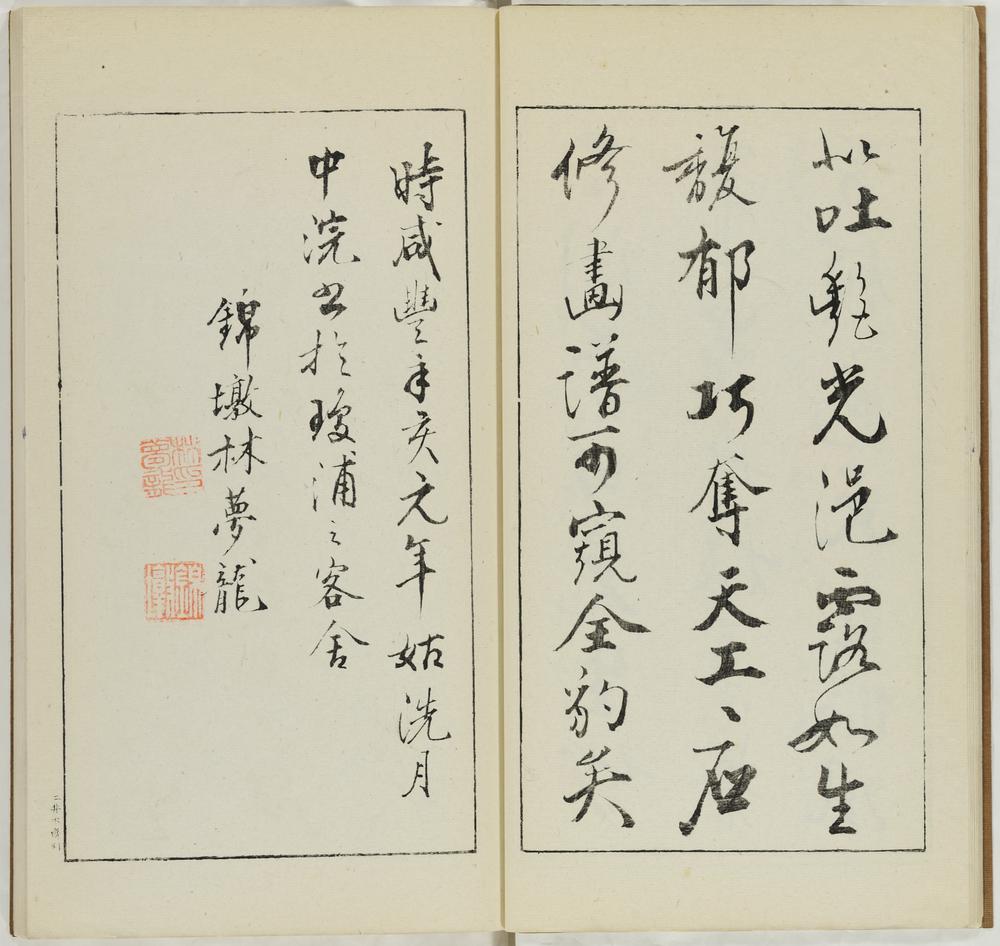 似吐艷光浥露如生
馥郁巧奪天工、
修畫譜可窺全豹矣
時咸豐辛亥元年姑洗月
中浣書於瓊浦之客舍
錦墩林夢龍